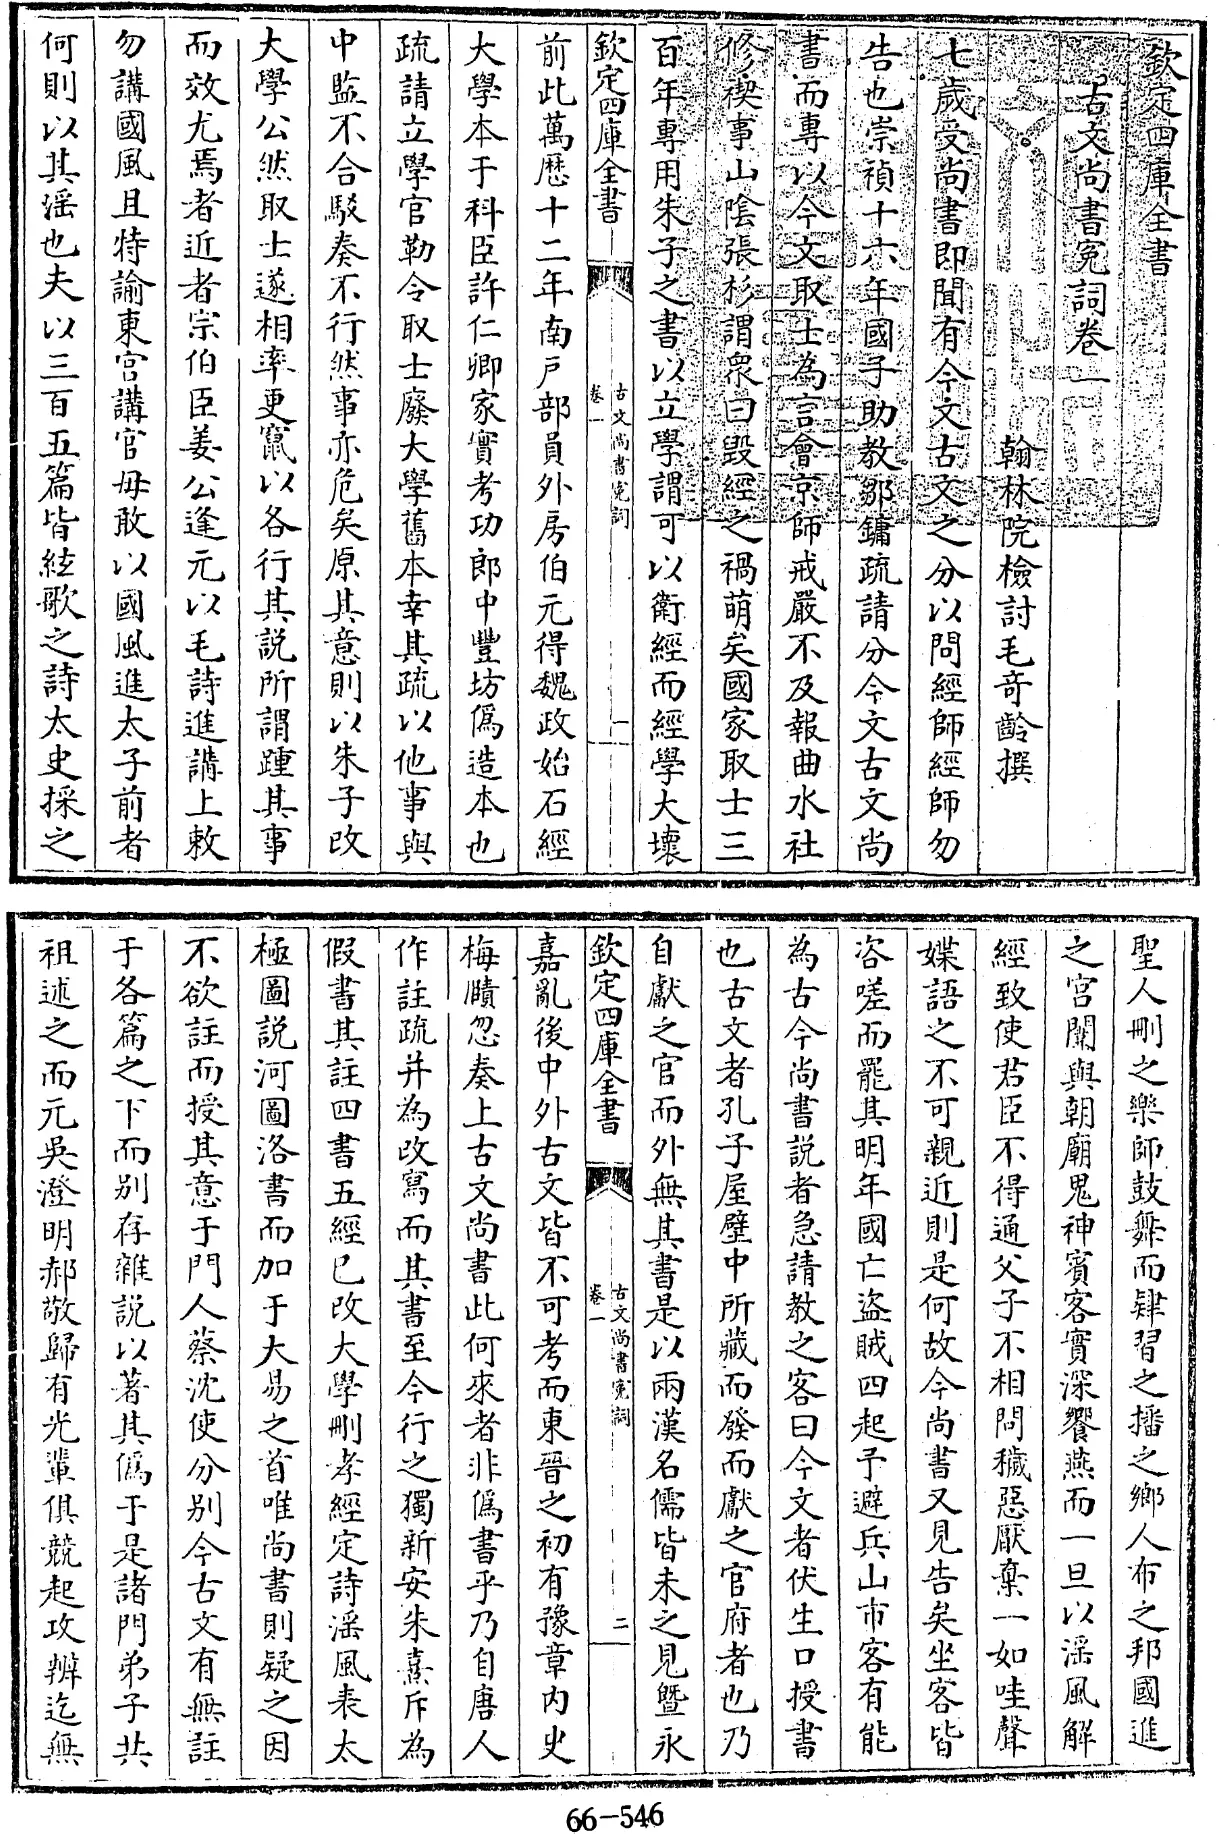 欽定四庫全書
古文尚書冤詞卷一
翰林院檢討毛奇齡撰
七歲受尚書即聞有今文古文之分以問經師經師勿
告也崇禎十六年國子助教鄒鏞疏請分今文古文尚
書而專以今文取士為言會京師戒嚴不及報曲水社
修禊事山陰張杉謂衆曰毀經之禍萌矣國家取士三
百年專用朱子之書以立學謂可以衛經而經學大壞
欽定四庫全書
古文尚書冤詞
卷一
一
前此萬歷十二年南戶部員外房伯元得魏政始石經
大學本于科臣許仁卿家實考功郎中豐坊偽造本也
疏請立學官勒令取士廢大學舊本幸其疏以他事與
中監不合駁奏不行然事亦危矣原其意則以朱子改
大學公然取士遂相率更竄以各行其説所謂踵其事
而效尤焉者近者宗伯臣姜公逢元以毛詩進講上敕
勿講國風且特諭東宫講官毋敢以國風進太子前者
何則以其淫也夫以三百五篇皆絃歌之詩太史採之
聖人刪之樂師鼓舞而肄習之播之鄉人布之邦國進
之宫闈與朝廟鬼神賓客實深饗燕而一旦以淫風解
經致使君臣不得通父子不相問穢惡厭棄一如哇聲
媟語之不可親近則是何故今尚書又見告矣坐客皆
咨嗟而罷其明年國亡盜賊四起予避兵山市客有能
為古今尚書説者急請教之客曰今文者伏生口授書
也古文者孔子屋壁中所藏而發而獻之官府者也乃
自獻之官而外無其書是以兩漢名儒皆未之見暨永
欽定四庫全書
古文尚書冤詞
卷一
二
嘉亂後中外古文皆不可考而東晉之初有豫章内史
梅賾忽奏上古文尚書此何來者非偽書乎乃自唐人
作註疏并為改寫而其書至今行之獨新安朱熹斥為
假書其註四書五經已改大學刪孝經定詩淫風表太
極圖説河圖洛書而加于大易之首唯尚書則疑之因
不欲註而授其意于門人蔡沈使分别今古文有無註
于各篇之下而别存雜説以著其偽于是諸門弟子共
祖述之而元吳澄明郝敬歸有光輩俱競起攻辨迄無
66-546